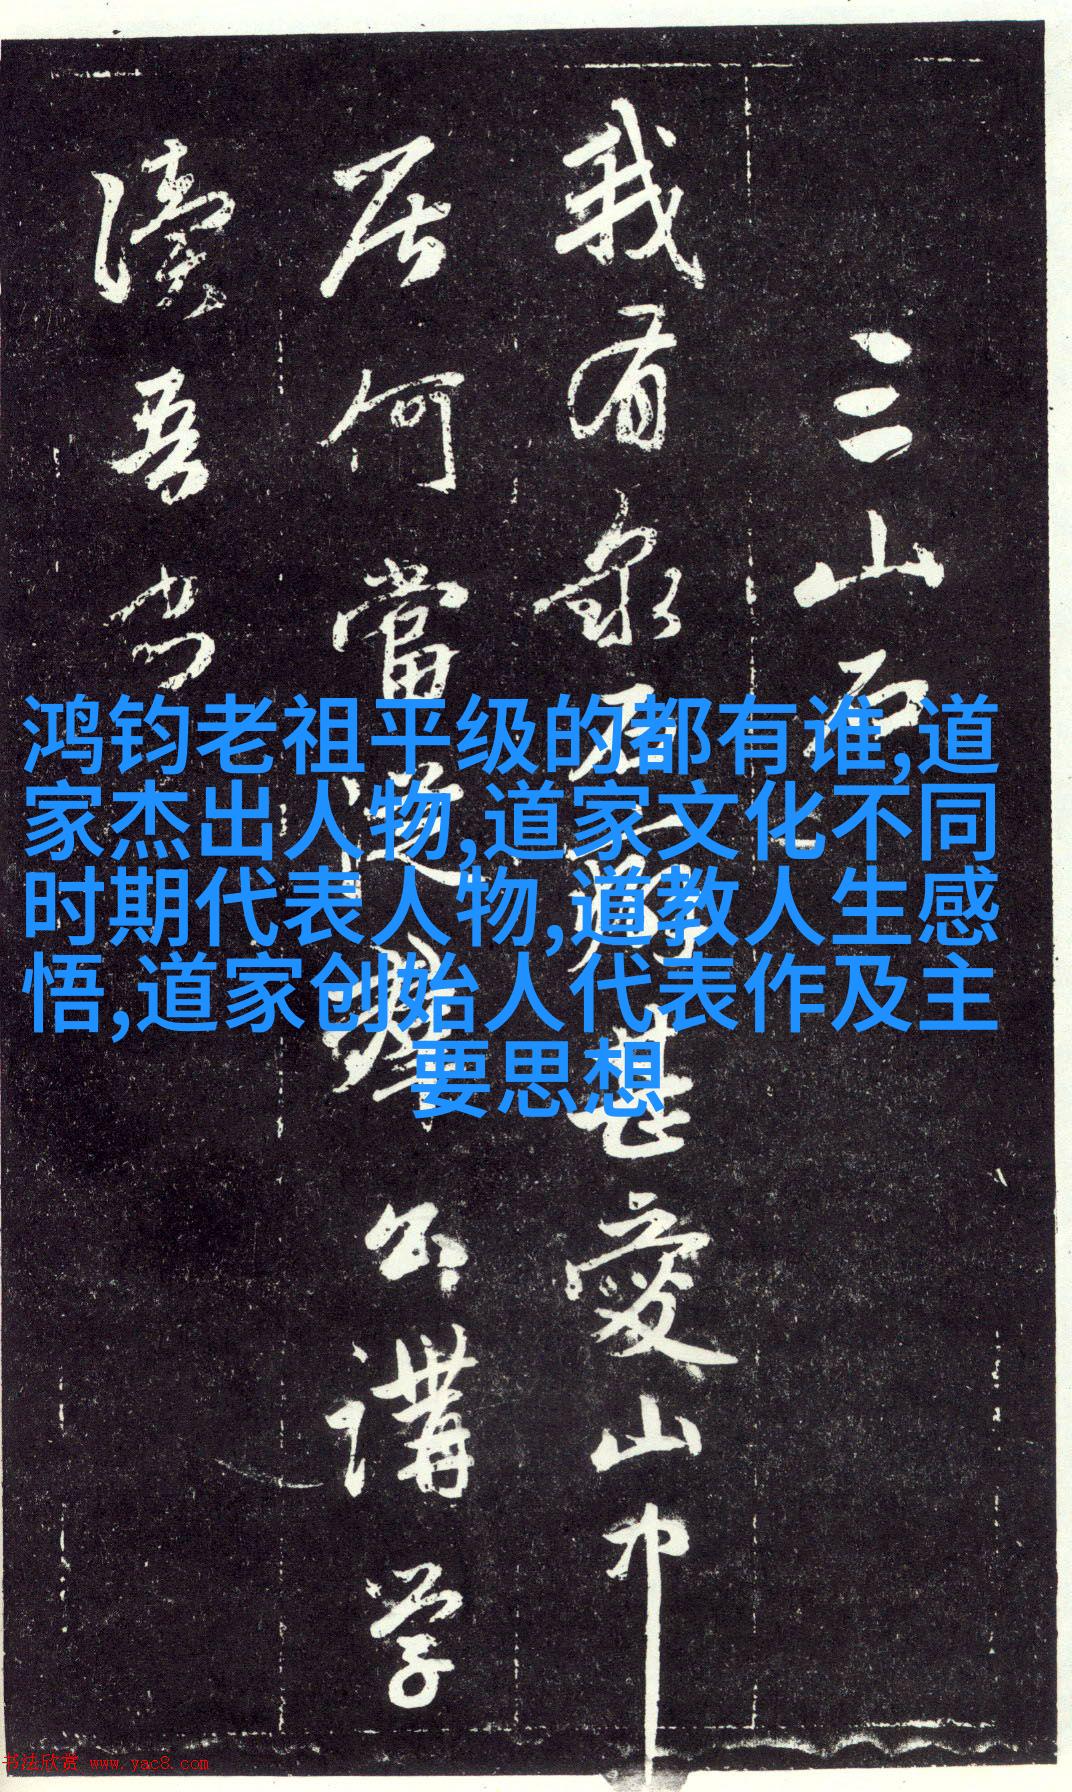 三山石
我有泉石癖甚愛山中
居何當從群公講學
讀吾書
鸿钧老祖平级的都有谁,道
家杰出人物,道家文化不同
时期代表人物,道教人生感
悟,道家创始人代表作及主
要思想
书法欣赏 www.yac8.com